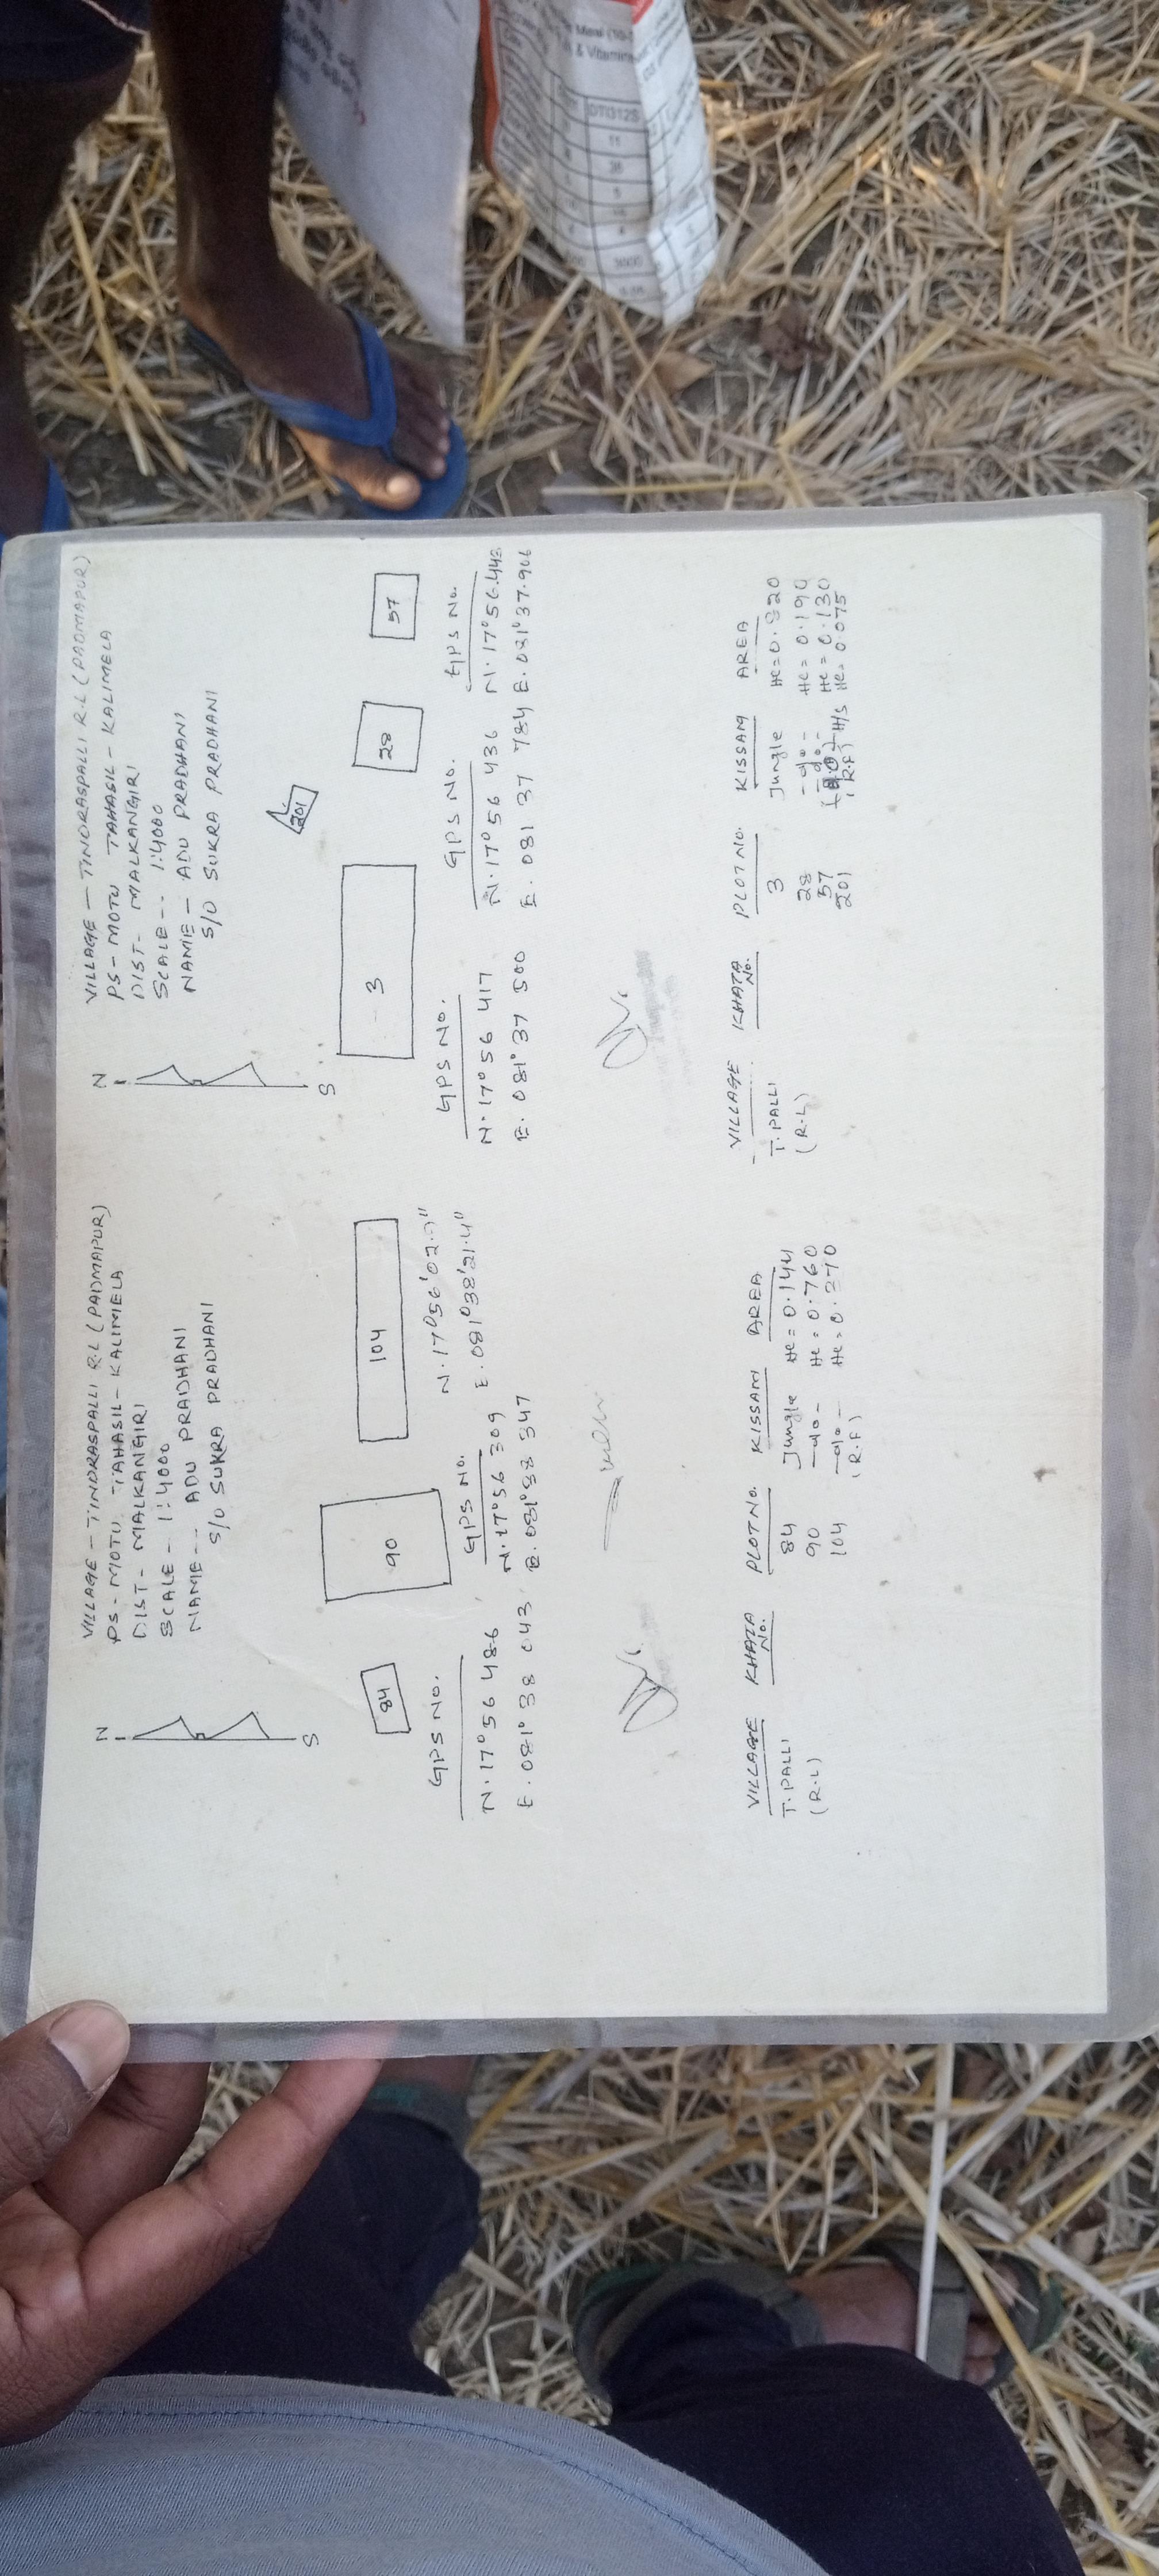 VILLAGE - TINDRASPALLI R.L (PADMAPUR)
PS - MOTU TAHASIL - KALIMELA
DIST - MALKANGIRI
SCALE - 1:4000
NAME - ADU PRADHANI
S/O SUKRA PRADHANI
N
S
84
90
104
GPS NO.
N. 17° 56 486
E. 081° 38 043
GPS NO.
N. 17° 56 309
E. 081° 38 347
N. 17° 56' 02.9"
E. 081° 38' 21.4"
VILLAGE KHATA No. PLOT NO. KISSAM AREA
T. PALLI 84 Jungle He = 0.144
(R.L) 90 - do - He = 0.760
104 - do - He = 0.370
(R.F)
VILLAGE - TINDRASPALLI R.L (PADMAPUR)
PS - MOTU TAHASIL - KALIMELA
DIST - MALKANGIRI
SCALE - 1:4000
NAME - ADU PRADHANI
S/O SUKRA PRADHANI
N
S
201
3
28
57
GPS NO.
N. 17° 56 417
E. 081° 37 500
GPS NO.
N. 17° 56 436
E. 081 37 784
GPS NO.
N. 17° 56.443
E. 081° 37.906
VILLAGE KHATA No. PLOT NO. KISSAM AREA
T. PALLI 3 Jungle He = 0.820
(R.L) 28 - do - He = 0.190
57 - do - He = 0.130
201 H/S He = 0.075
(R.F)
Meal
& Vitamins
DTI312S
11
26
5
4
3000